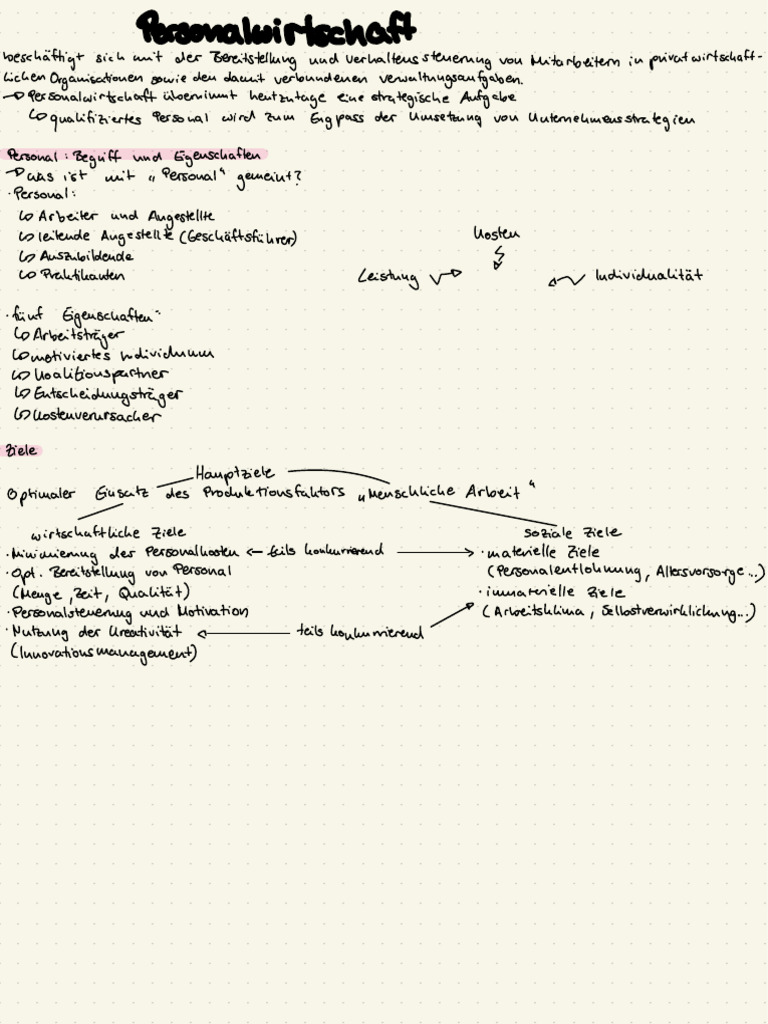 Personalwirtschaft
beschäftigt sich mit der Bereitstellung und Verhaltenssteuerung von Mitarbeitern in privatwirtschaft-
lichen Organisationen sowie den damit verbundenen Verwaltungsaufgaben.
→ Personalwirtschaft übernimmt heutzutage eine strategische Aufgabe
↳ qualifiziertes Personal wird zum Engpass der Umsetzung von Unternehmensstrategien
Personal: Begriff und Eigenschaften
→ Was ist mit „Personal“ gemeint?
· Personal:
↳ Arbeiter und Angestellte
↳ leitende Angestellte (Geschäftsführer)
↳ Auszubildende
↳ Praktikanten
Kosten
Leistung
Individualität
· fünf Eigenschaften:
↳ Arbeitsträger
↳ motiviertes Individuum
↳ Koalitionspartner
↳ Entscheidungsträger
↳ Kostenverursacher
Ziele
Hauptziele
Optimaler Einsatz des Produktionsfaktors „Menschliche Arbeit“
wirtschaftliche Ziele
· Minimierung der Personalkosten ← teils konkurrierend →
· Opt. Bereitstellung von Personal
(Menge, Zeit, Qualität)
· Personalsteuerung und Motivation
· Nutzung der Kreativität ← teils konkurrierend →
(Innovationsmanagement)
soziale Ziele
· materielle Ziele
(Personalentlohnung, Altersvorsorge...)
· immaterielle Ziele
(Arbeitsklima, Selbstverwirklichung...)